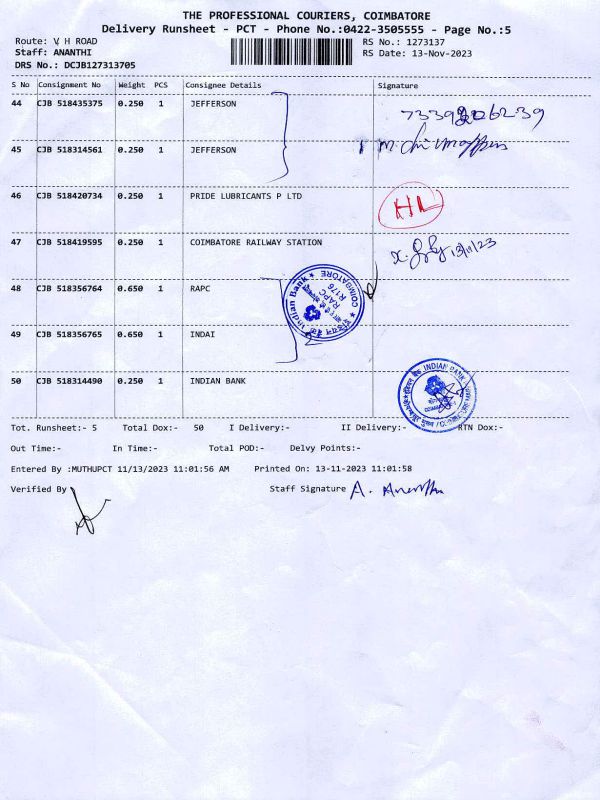 THE PROFESSIONAL COURIERS, COIMBATORE
Delivery Runsheet - PCT - Phone No.:0422-3505555 - Page No.:5
Route: V H ROAD RS No.: 1273137
Staff: ANANTHI RS Date: 13-Nov-2023
DRS No.: DCJB127313705
S No Consignment No Weight PCS Consignee Details Signature
44 CJB 518435375 0.250 1 JEFFERSON
45 CJB 518314561 0.250 1 JEFFERSON
46 CJB 518420734 0.250 1 PRIDE LUBRICANTS P LTD HL
47 CJB 518419595 0.250 1 COIMBATORE RAILWAY STATION 13/11/23
48 CJB 518356764 0.650 1 RAPC
Indian Bank
RAPC
R176
COIMBATORE
49 CJB 518356765 0.650 1 INDAI
50 CJB 518314490 0.250 1 INDIAN BANK
INDIAN BANK
Tot. Runsheet:- 5 Total Dox:- 50 I Delivery:- II Delivery:- RTN Dox:-
Out Time:- In Time:- Total POD:- Delvy Points:-
Entered By :MUTHUPCT 11/13/2023 11:01:56 AM Printed On: 13-11-2023 11:01:58
Verified By Staff Signature